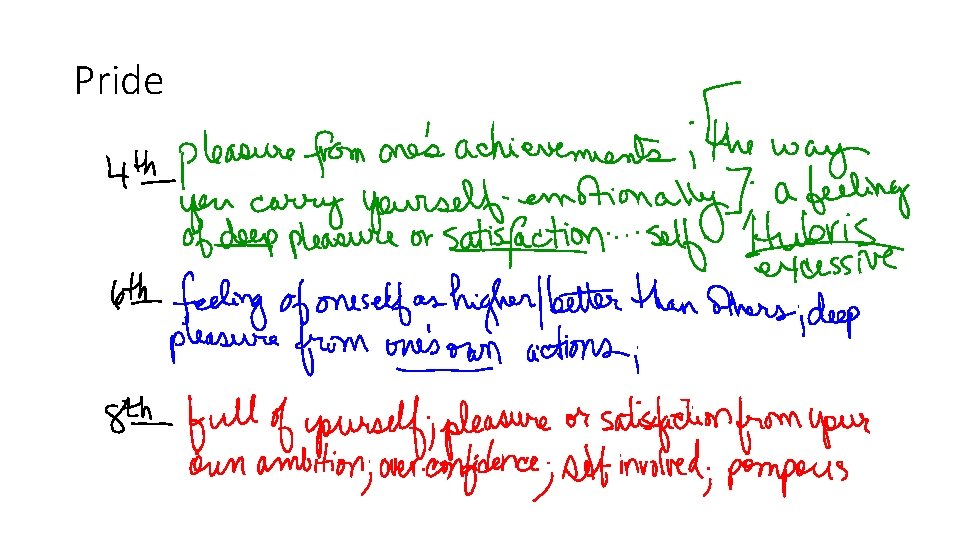 Pride
4th pleasure from one's achievements; [the way
you carry yourself-emotionally]: a feeling
of deep pleasure or satisfaction....self Hubris
excessive
6th feeling of oneself as higher/better than others; deep
pleasure from one's own actions;
8th full of yourself; pleasure or satisfaction from your
own ambition; over-confidence; self involved; pompous